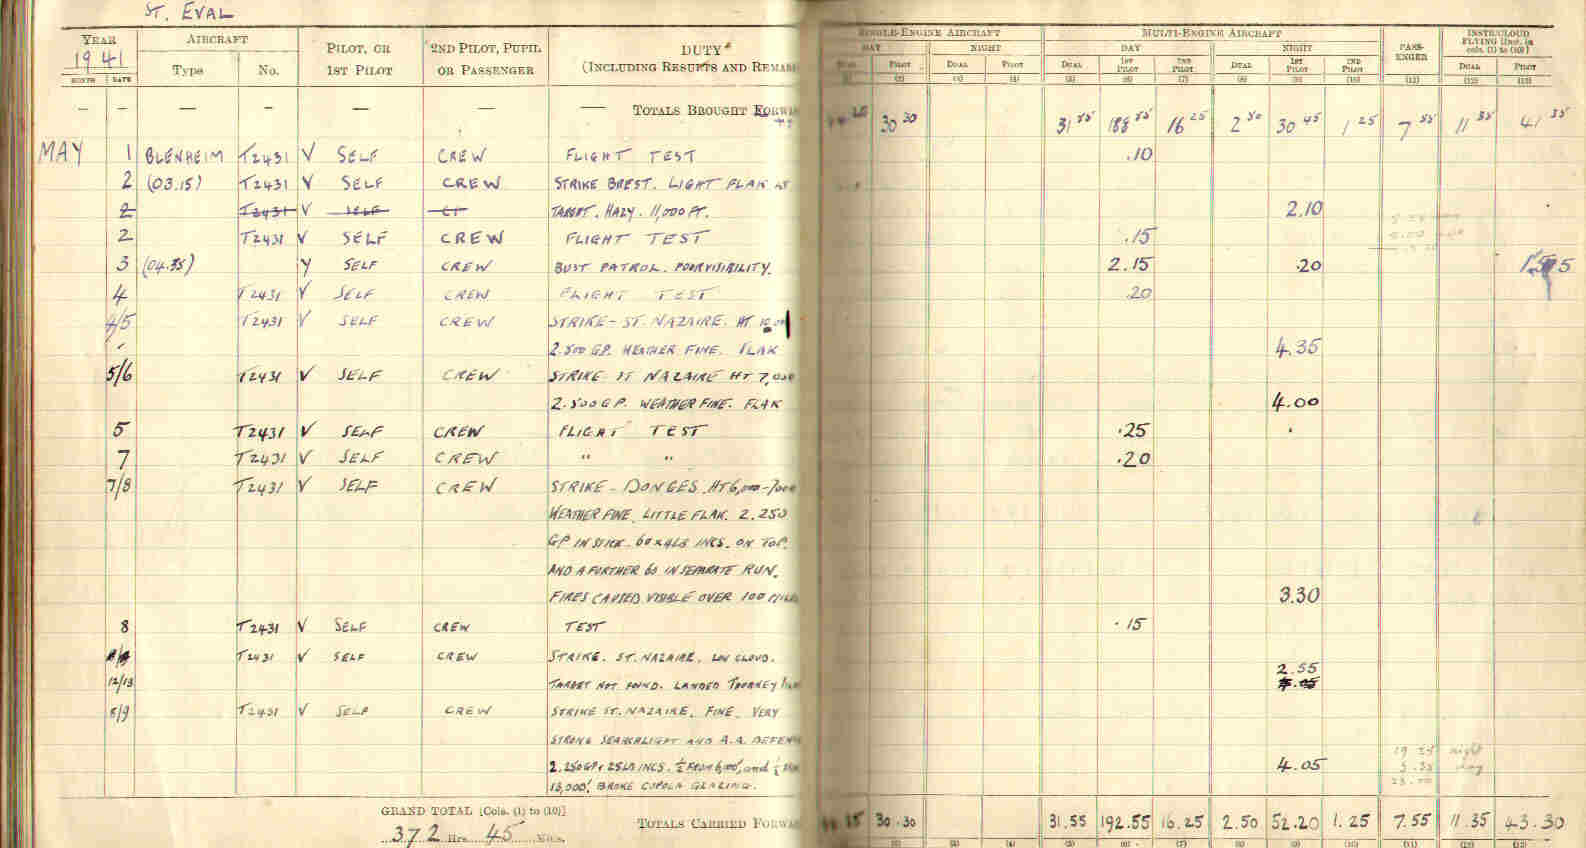 ST. EVAL
YEAR AIRCRAFT PILOT, OR 2ND PILOT, PUPIL DUTY SINGLE-ENGINE AIRCRAFT MULTI-ENGINE AIRCRAFT PASS- INSTR/CLOUD
1941 Type No. 1ST PILOT OR PASSENGER (INCLUDING RESULTS AND REMAR DAY NIGHT DAY NIGHT ENGER FLYING
MONTH DATE PILOT DUAL PILOT DUAL 1ST PILOT 2ND PILOT DUAL 1ST PILOT 2ND PILOT DUAL PILOT
(2) (3) (4) (5) (6) (7) (8) (9) (10) (11) (12) (13)
— — — — — — — TOTALS BROUGHT FORWA 30 30 31 55 188 55 16 25 2 50 30 45 1 25 7 55 11 35 41 35
MAY 1 BLENHEIM T2431 V SELF CREW FLIGHT TEST .10
2 (03.15) T2431 V SELF CREW STRIKE BREST. LIGHT FLAK AT
2 T2431 V SELF TARGET. HAZY. 11,000 FT. 2.10
2 T2431 V SELF CREW FLIGHT TEST .15
3 (04.35) Y SELF CREW BUST PATROL. POOR VISIBILITY. 2.15 .20
4 T2431 V SELF CREW FLIGHT TEST 20
4/5 T2431 V SELF CREW STRIKE - ST. NAZAIRE. HT
2.500 GP. WEATHER FINE. FLAK 4.35
5/6 T2431 V SELF CREW STRIKE ST NAZAIRE HT 7,000
2.500 G.P. WEATHER FINE. FLAK 4.00
5 T2431 V SELF CREW FLIGHT TEST .25
7 T2431 V SELF CREW " " .20
7/8 T2431 V SELF CREW STRIKE - DONGES. HT 6,000-7000
WEATHER FINE. LITTLE FLAK. 2.250
GP IN STICK. 60 x 4LB INCS. ON TOP.
AND A FURTHER 60 IN SEPARATE RUN.
FIRES CAUSED VISIBLE OVER 100 MILES 3.30
8 T2431 V SELF CREW TEST .15
T2431 V SELF CREW STRIKE. ST. NAZAIRE. LOW CLOUD. 2.55
12/13 TARGET NOT FOUND. LANDED THORNEY
8/9 T2431 V SELF CREW STRIKE ST. NAZAIRE. FINE. VERY
STRONG SEARCHLIGHT AND A.A. DEFEN
2.250 GP 25LB INCS. ½ FROM 6,000', and ½ 4.05
13,000'. BROKE CUPOLA GLAZING.
19 25 night
3.35 day
23.00
GRAND TOTAL [Cols. (1) to (10)]
372 Hrs. 45 Mins.
TOTALS CARRIED FORWA 30.30 31.55 192.55 16.25 2.50 52.20 1.25 7.55 11.35 43.30